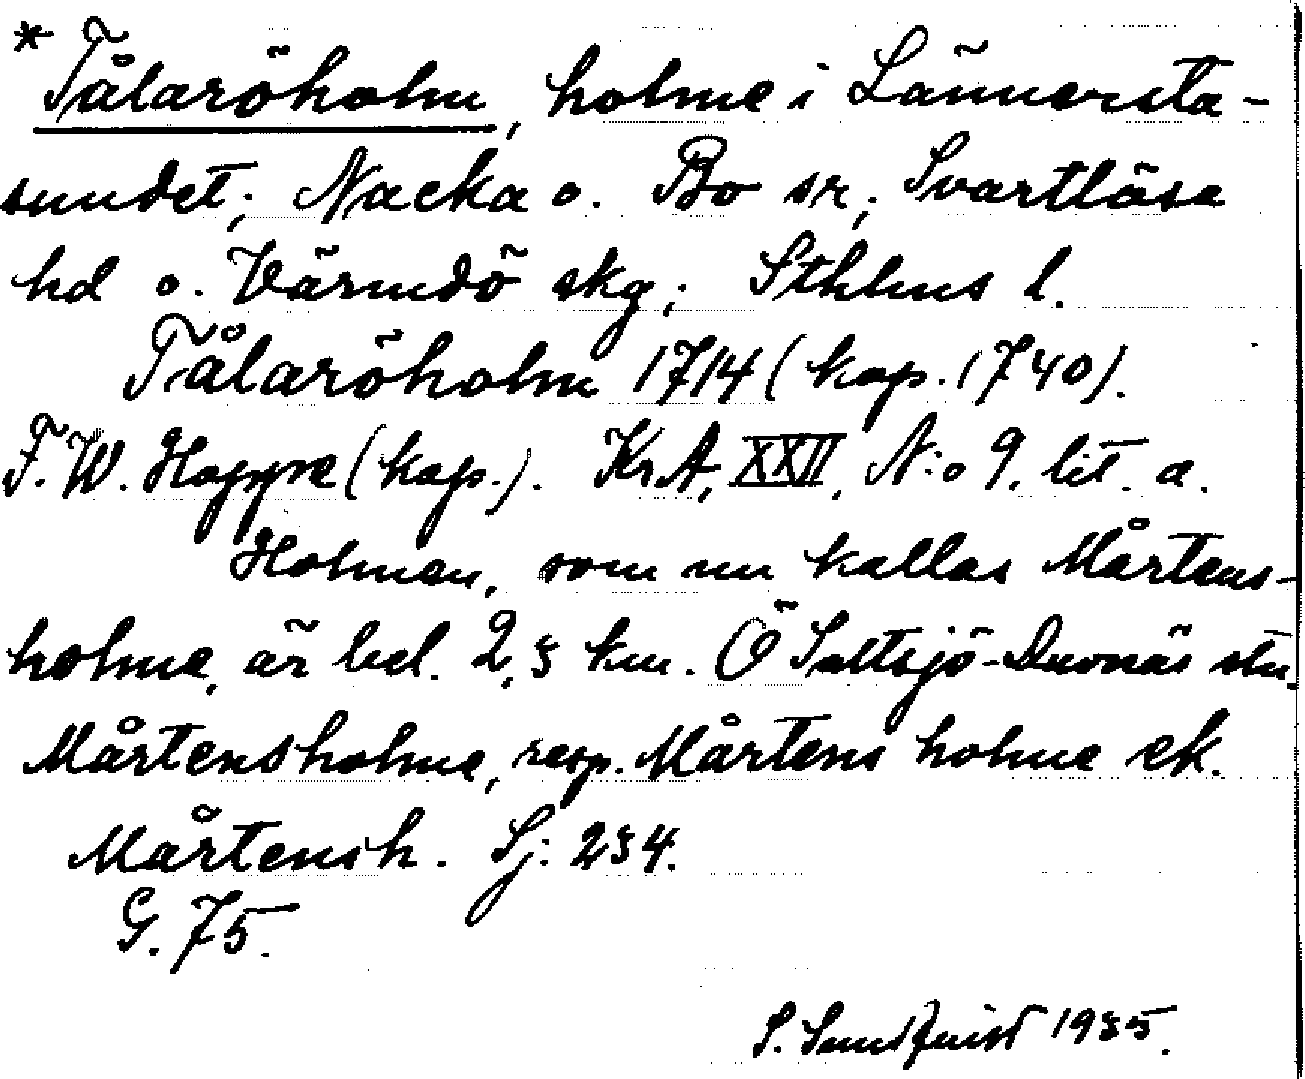 * Tålaröholm, holme i Lännersta-
sundet; Nacka o. Bo sr; Svartlösa
hd o. Värmdö skg; Sthlms l.
Tålaröholm 1714 (kop. 1740).
F. W. Hoppe (kop.). KrA, XXII, N:o 9. lit. a.
Holmen, som nu kallas Mårtens-
holme, är bel. 2,5 km. Ö Saltsjö-Duvnäs stn.
Mårtensholme, resp. Mårtens holme ek.
Mårtensh. Sj: 234.
G. 75.
S. Sundquist 1935.